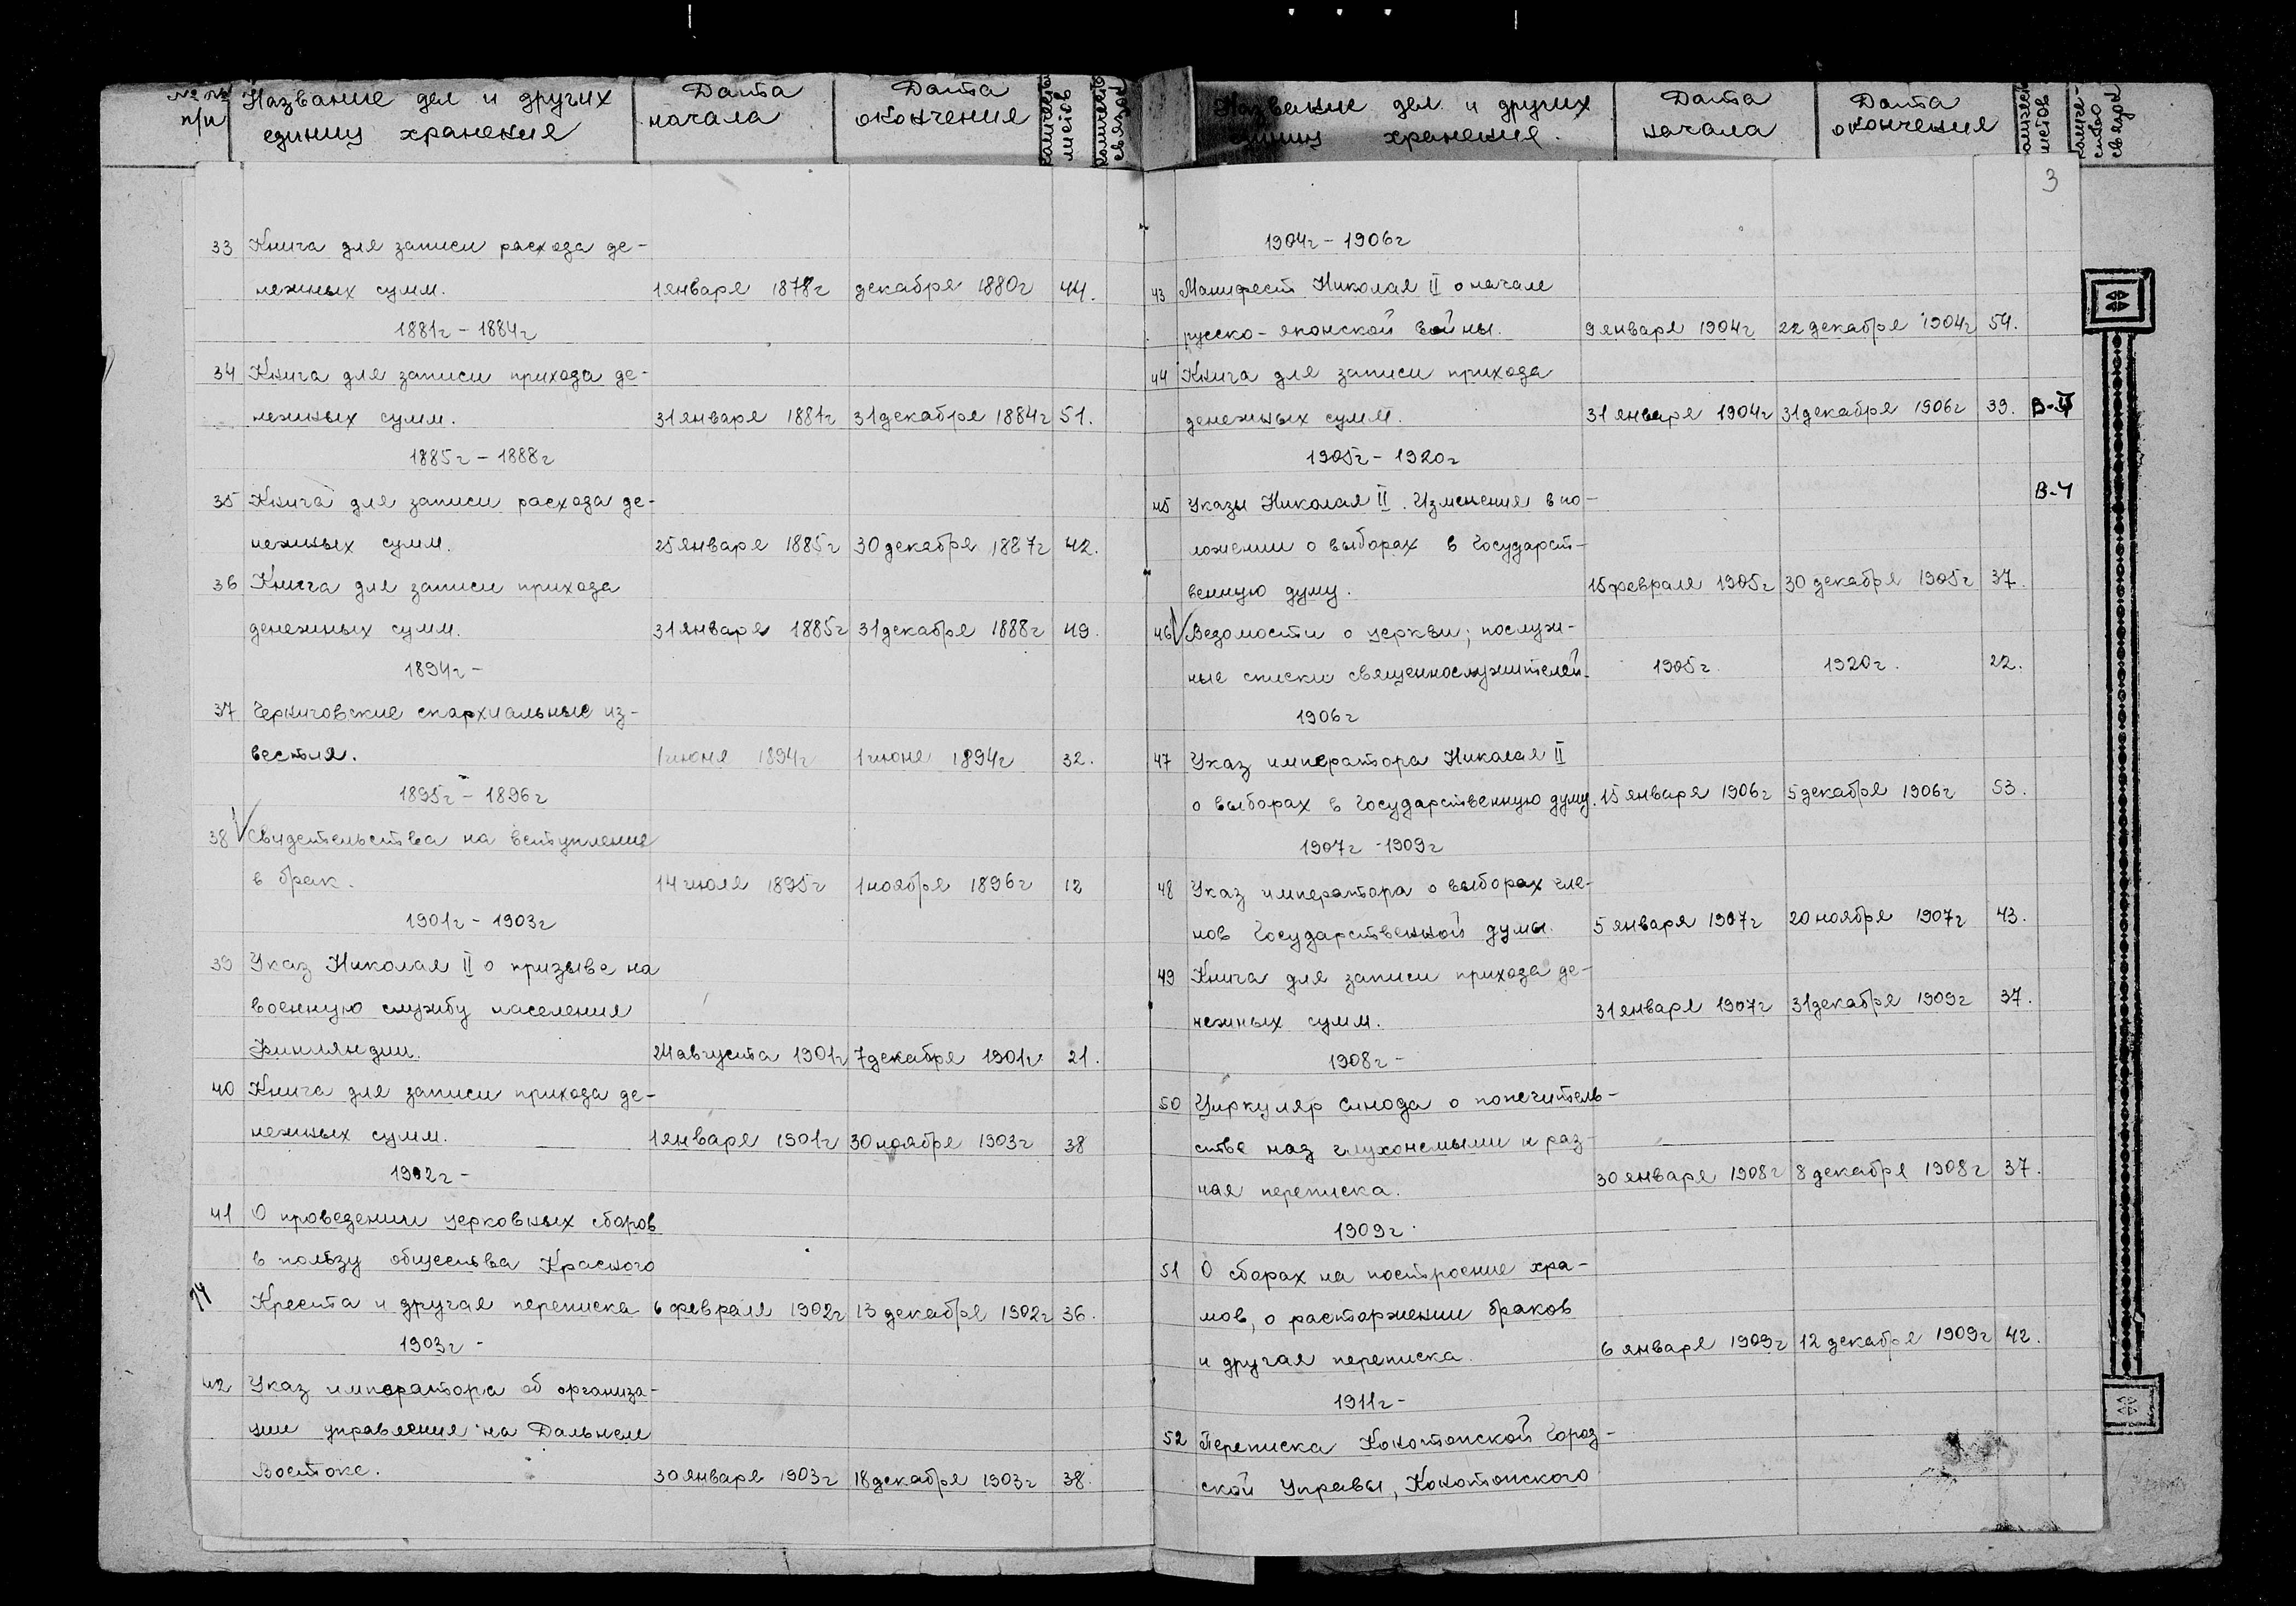 №№ Название дел и других Дата Дата количество количество
п/п единиц хранения начала окончения листов связок
33 Книга для записи расхода де-
нежных сумм. 1 января 1878г декабря 1880г 44.
1881г - 1884г
34 Книга для записи прихода де-
нежных сумм. 31 января 1881г 31 декабря 1884г 51.
1885г - 1888г
35 Книга для записи расхода де-
нежных сумм. 25 января 1885г 30 декабря 1887г 42.
36 Книга для записи прихода
денежных сумм. 31 января 1885г 31 декабря 1888г 49.
1894г -
37 Черниговские епархиальные из-
вестия. 1 июня 1894г 1 июня 1894г 32.
1895г - 1896г
38 √ Свидетельства на вступление
в брак. 14 июля 1895г 1 ноября 1896г 12
1901г - 1903г
39 Указ Николая II о призыве на
военную службу населения
Финляндии. 24 августа 1901г 7 декабря 1901г 21.
40 Книга для записи прихода де-
нежных сумм. 1 января 1901г 30 ноября 1903г 38
1902г -
41 О проведении церковных сборов
в пользу общества Красного
Креста и другая переписка 6 февраля 1902г 13 декабря 1902г 36.
1903г -
42 Указ императора об организа-
ции управления на Дальнем
Востоке. 30 января 1903г 18 декабря 1903г 38.
Название дел и других Дата Дата количество количе-
единиц хранения. начала окончения листов ство
связок
3
1904г - 1906г
43 Манифест Николая II о начале
русско-японской войны. 9 января 1904г 22 декабря 1904г 54.
44 Книга для записи прихода
денежных сумм. 31 января 1904г 31 декабря 1906г 39.
1905г - 1920г
45 Указы Николая II. Изменения в по-
ложении о выборах в Государст-
венную думу. 15 февраля 1905г 30 декабря 1905г 37.
46 √ Ведомости о церкви; послуж-
ные списки священнослужителей. 1905г. 1920г. 22.
1906г
47 Указ императора Николая II
о выборах в Государственную думу. 15 января 1906г 5 декабря 1906г 53.
1907г - 1909г
48 Указ императора о выборах чле-
нов Государственной думы. 5 января 1907г 20 ноября 1907г 43.
49 Книга для записи прихода де-
нежных сумм. 31 января 1907г 31 декабря 1909г 37.
1908г -
50 Циркуляр синода о попечитель-
стве над глухонемыми и раз-
ная переписка. 30 января 1908г 8 декабря 1908г 37.
1909г.
51 О сборах на построение хра-
мов, о расторжении браков
и другая переписка. 6 января 1909г 12 декабря 1909г 42.
1911г -
52 Переписка Конотопской Город-
ской Управы, Конотопского